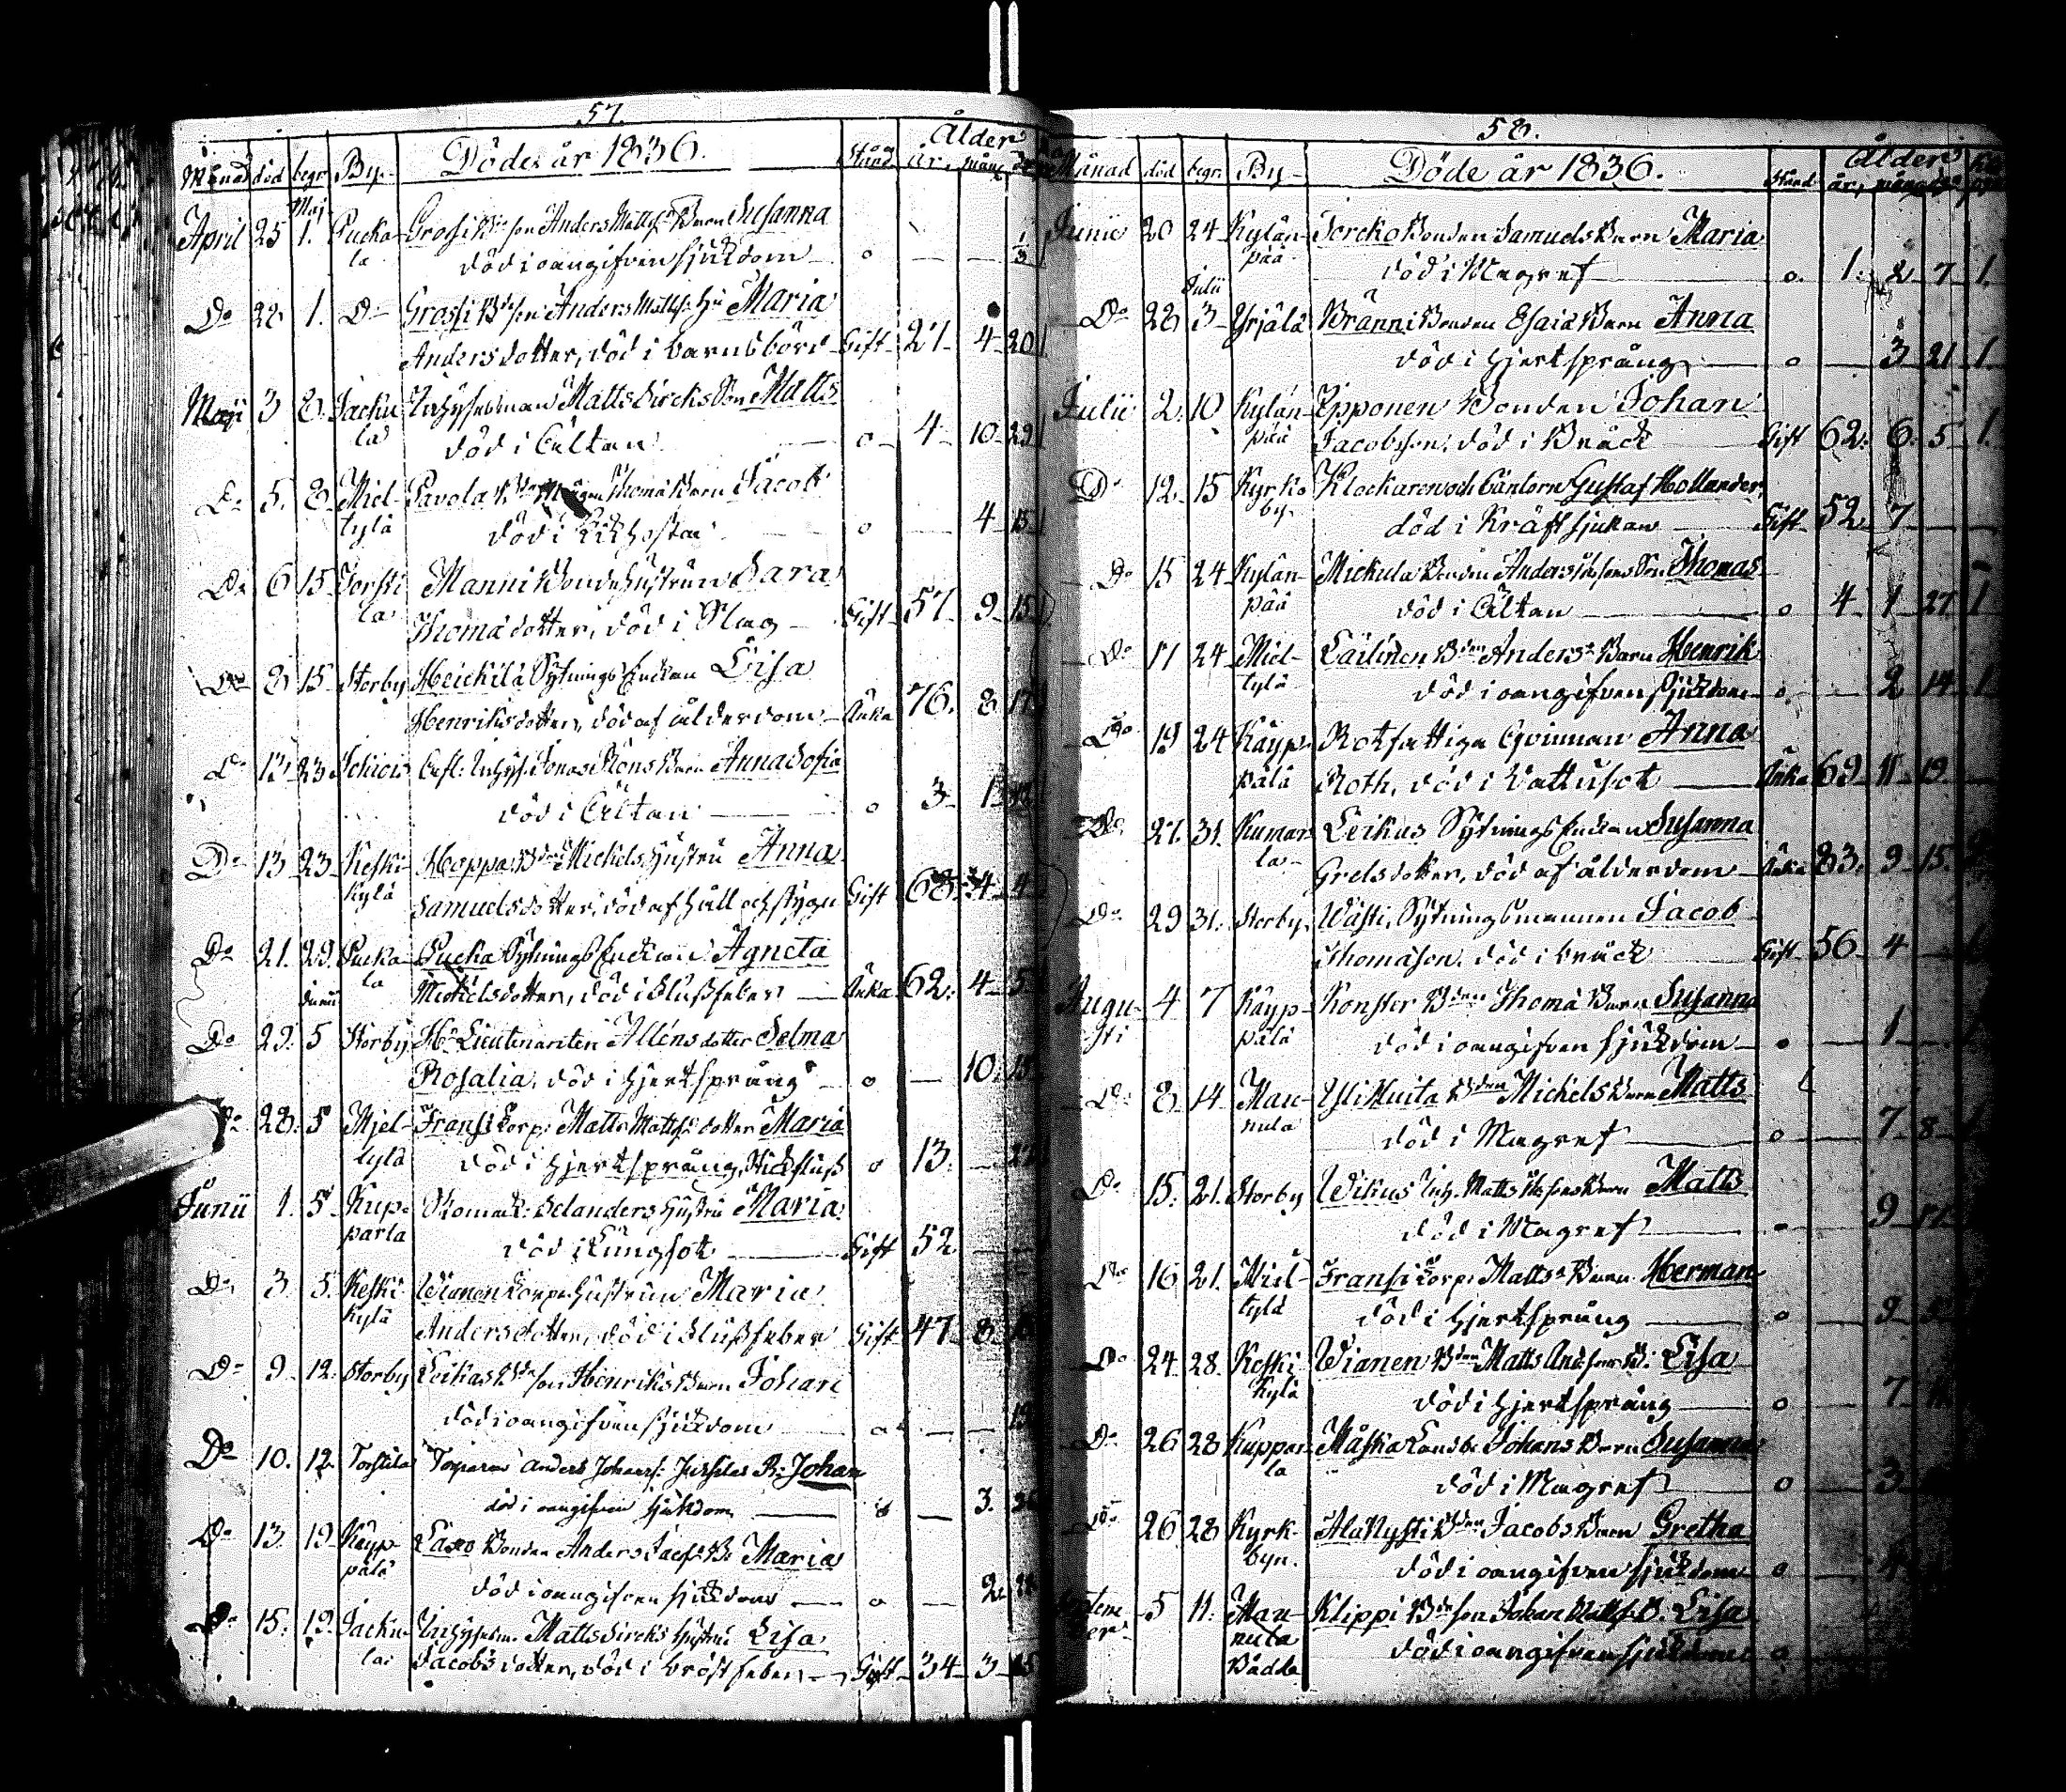 57.
Döde år 1836.
Ålder
Månad död begr. By. Stånd år, mån,
Maj
April 25 1. Pucka- Grosi Bdesson Anders Matts Barn Susanna
la död i oangifven sjukdom o — —
Do 28 1. Do Grossi Bdeson Anders Matts. Hu Maria
Andersdotter, död i barnsbörd Gift 27 4 20
Maji 3 8 Jacku- Inhysesman Matts Sircks Son Matts
la död i Ältan o 4 10 29
Do 5. 8 Miel- Pavola Thomas Barn Jacob
tylä död i Kikhosta o — 4 15
Do 6 15 Torsti- Manni Bondehustrun Sara
la Thomasdotter, död i Slag Gift 57 9 15
Do 8 15 Storby Heickilä Sytnings Enckan Lisa
Henriksdotter, död af ålderdom Änka 76. 8 17
Do 13 23 Inhys. Jonas Barn Anna Sofia
död i Ältan o 3
Do 13 23 Keski- Hoppa Bden Mickels Hustru Anna
kylä Samuelsdotter, död af håll och stygn Gift 68 4 4
Do 21. 29. Pucka- Pucka Sytnings Enckan Agneta
la Michelsdotter, död i Flussfeber Änka 62. 4 5
Junii
Do 29. 5 Storby Hr Lieutenanten Alléns dotter Selma
Rosalia, död i Hjertsprång o — 10. 15
Do 28. 5 Mjel- Fransi Corp. Matts Matts. dotter Maria
tylä död i Hjertsprång, Stickfluss o 13. —
Junii 1. 5 Kup- Skomak. Selanders Hustru Maria
parla död i Lungsot Gift 52 —
Do 3 5. Keski- Wianen Corpr. Hustrun Maria
kylä Andersdotter, död i Flussfeber Gift 47. 8
Do 9 12. Storby Leikas Bdeson Henriks Barn Johan
död i oangifven sjukdom o — —
Do 10. 12. Torstila Torparen Anders Johans. B. Johan
död i oangifven sjukdom o — 3.
Do 13. 19. Käyp- Lasso Bonden Anders Jacs. B. Maria
pälä död i oangifven sjukdom o — 2
Do 15. 19. Jacku- Inhysesm. Matts Sircks Hustru Lisa
la Jacobsdotter, död i bröstfeber Gift 34 3 15
58.
Döde år 1836.
Ålder
Månad död begr. By Stånd år, mån
Junii 20 24 Kylän- Jorcko Bonden Samuels Barn Maria
pää död i Magref o. 1. 2 7 1.
Julii
Do 28 3 Yrjälä Bränni Bonden Esaia Barn Anna
död i Hjertsprång o — 3 21 1.
Julii 2. 10 Kylän- Epponen Bonden Johan
pää Jacobsson, död i Bråck Gift 62. 6. 5 1.
Do 12. 15 Kyrko- Klockaren och Cantorn Gustaf Hollander
by. död i Kräftsjukan Gift 52 7 — —
Do 15 24 Kylän- Mickula Bonden Anders Son Thomas
pää död i Ältan o 4 1 27 1
Do 17 24 Miel- Lailinen Bden Anders Barn Henrik
tylä död i oangifven sjukdom o — 2 14 1
Do 19 24 Käyp- Rotfattiga Qvinnan Anna
pälä Roth, död i Vattusot Änka 69 11 19. —
Do 27. 31. Kumar- Leikus Sytnings Enckan Susanna
la Grelsdotter, död af ålderdom Änka 83. 9 15.
Do 29 31. Storby. Wästi, Sytningsmannen Jacob
Thomasson, död i bråck Gift 56 4 —
Augu- 4 7 Käyp- Konster Bden Thomas Barn Susanna
sti pälä död i oangifven sjukdom o — 1 —
Do 8 14 Man- Yli Nuita Bden Michels Barn Matts
nula död i Magref o — 7 8
Do 15. 21. Storby Wikus Inh. Matts Barn Matts
död i Magref o — 9
Do 16 21. Miel- Fransi Corpr. Matts Barn Herman
tylä död i Hjertsprång o — 9
Do 24 28. Keski- Wianen Bden Matts B. Lisa
kylä död i Hjertsprång o — 7
Do 26 28 Kuppar- Måska Landsb. Johans Barn Susanna
la död i Magref o — 3
Do 26 28 Kyrk- Ala Nysti Bden Jacobs Barn Gretha
byn. död i oangifven sjukdom o —
5 11. Man- Klippi Bdeson Johan Matts. B. Lisa
ber nula död i oangifven sjukdom o
Bådda